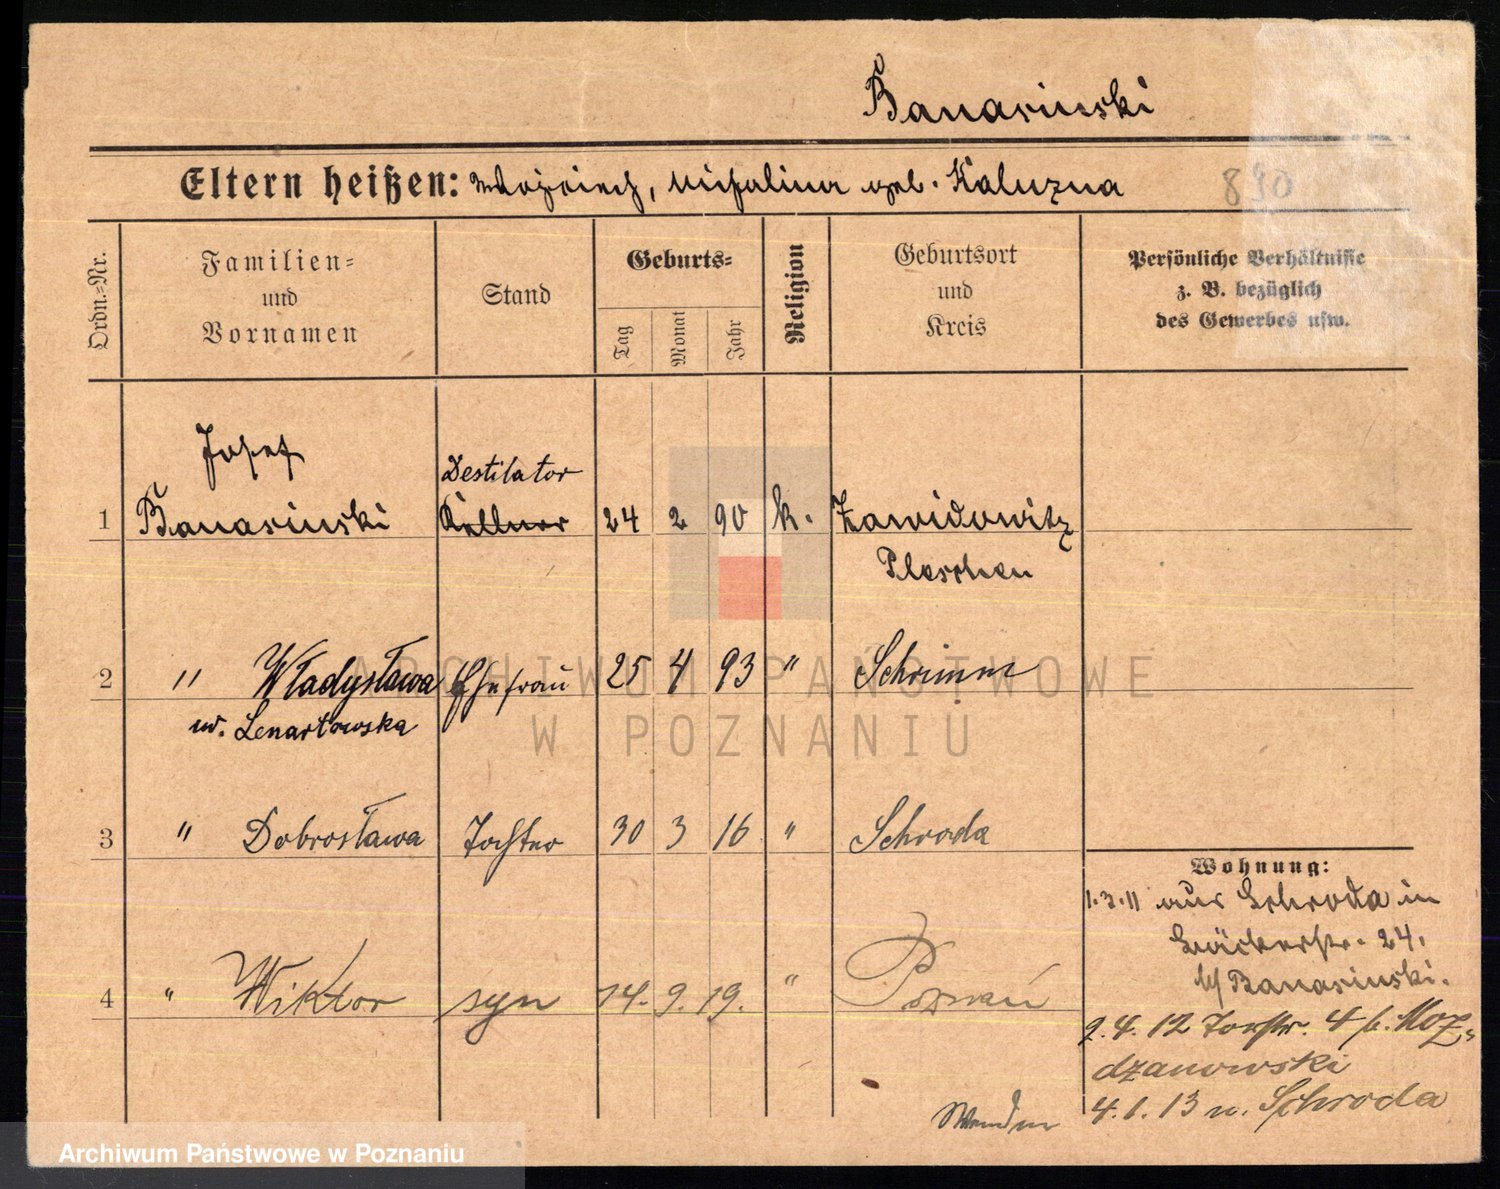 Banasinski
Eltern heißen: Wojciech, Michalina geb. Kaluzna
890
Ordn.-Nr.
Familien-
und
Vornamen
Stand
Geburts-
Tag
Monat
Jahr
Religion
Geburtsort
und
Kreis
Persönliche Verhältnisse
z. B. bezüglich
des Gewerbes usw.
Josef
Destilator
1 Banasinski Kellner 24 2 90 k. Zawidowitz
Pleschen
2 " Władysława Ehefrau 25 4 93 " Schrimm
w. Lenartowska
3 " Dobrosława Tochter 30 3 16 " Schroda
4 " Wiktor syn 14. 9. 19. " Poznań
Wohnung:
1.3.11 aus Schroda in
Bäckerstr. 24.
b/ Banasinski.
2.4.12 Torstr. 4 b. Moz-
dzanowski
4.1.13 n. Schroda
Wenden
ARCHIWUM PAŃSTWOWE
W POZNANIU
Archiwum Państwowe w Poznaniu